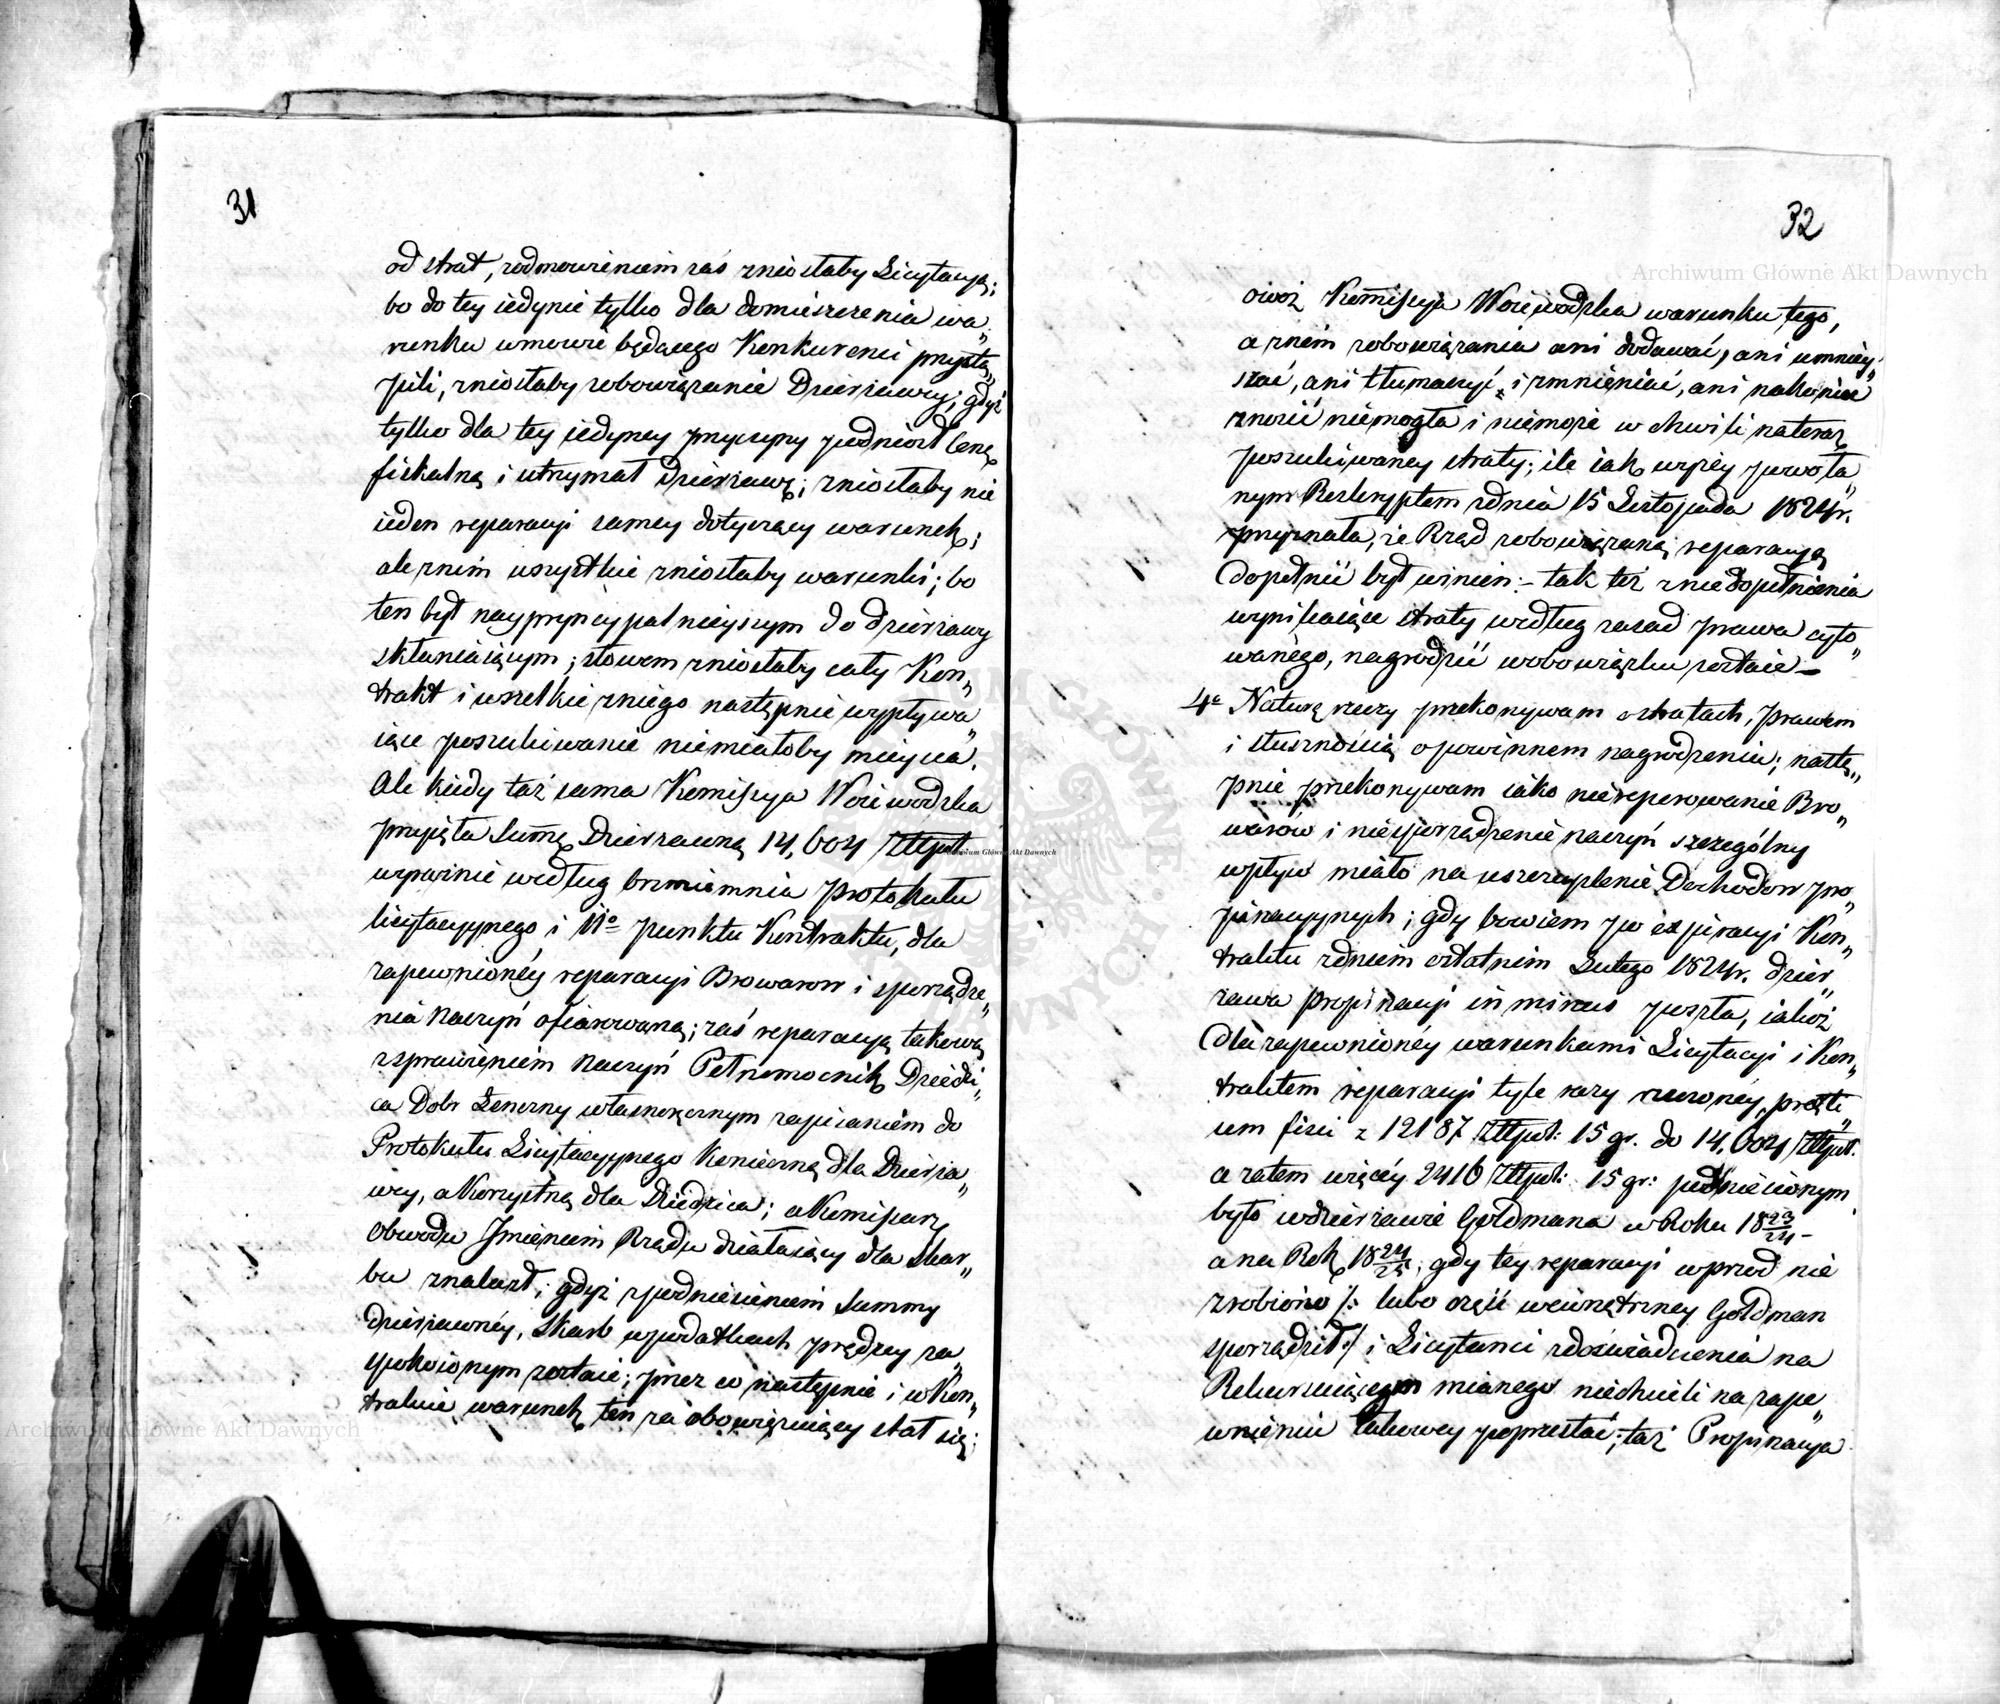 31
od strat, zodmowieniem zaś zniosłaby Licytacyą;
bo do tey iedynie tylko dla domieszczenia wa„
runku wmowie będącego Konkurenci przystą„
pili, zniosłaby zobowiązanie Dzierżawcy; gdyż
tylko dla tey iedyney przyczyny podniosł Cenę
fiskalną i utrzymał Dzierżawę; zniosłaby nie
ieden reparacyi samey dotyczący warunek;
ale znim wszystkie zniosłaby warunki; bo
ten był naypryncypalnieyszym do dzierżawy
skłaniaiącym; słowem zniosłaby cały Kon„
trakt i wszelkie zniego następnie wypływa„
iące poszukiwanie niemiałoby mieysca.
Ale kiedy taż sama Kommissya Woiewodzka
przyięła Summę Dzierżawną 14,604 Złłpol.
wyraźnie według brzmienia Protokułu
licytacyynego i 11o punktu Kontraktu, dla
zapewnionéy reparacyi Browarow i sporządze„
nia Naczyń ofiarowaną; zaś reparacyą takową
zsprawieniem Naczyń Pełnomocnik Dziedzi„
ca Dobr Łeneczny własnoręcznym zapisaniem do
Protokułu Licytacyynego konieczną dla Dzierża„
wcy, a korzystną dla Dziedzica; a Kommissarz
Obwodu Imieniem Rządu działaiący dla Skar„
bu znalazł; gdyż zpodniesieniem Summy
dzierżawnéy, Skarb wpodatkach prędzey za„
spokoionym zostaie; przez co następnie i w Kon„
trakcie warunek ten za obowięzuiący stał się;
32
owoż Kommissya Woiewodzka warunku tego,
a zniém zobowiązania ani dodawać, ani umniey„
szać, ani tłumaczyć i zmnieniać, ani nakoniec
znosić niemogła i niemoże w chwili nateraz
poszukiwaney straty; ile iak wyżey powoła„
nym Reskryptem zdnia 15 Listopada 1824r.
przyznała, że Rząd zobowiązaną reparacyą
dopełnić był winien:– tak też zniedopełnienia
wynikaiące straty według zasad prawa cyto„
wanego, nagrodzić wobowiązku zostaie–
4o Naturą rzeczy przekonywam ostratach, prawem
i słusznością opowinnem nagrodzeniu; nastę„
pnie przekonywam iako niereperowanie Bro„
warów i niesporządzenie naczyń szczególny
wpływ miało na uszczuplenie Dochodow pro„
pinacyynych; gdy bowiem po expiracyi Kon„
traktu zdniem ostatnim Lutego 1824r. dzier„
żawa propinacyi in minus poszła, iakoż
dla zapewnionéy warunkami Licytacyi i Kon„
traktem reparacyi tyle razy rzeczonéy, praeti„
um fisci z 12187 Złłpol: 15 gr. do 14,604 Złłpol.
a zatem więcéy 2416 Złłpol: 15 gr: podniesionym
było wdzierżawie Goldmana w Roku 1823/24–
a na Rok 1824/25; gdy tey reparacyi wprzod nie
zrobiono /: lubo część wewnętrzney Goldman
sporządził :/ i Licytanci zdoświadczenia na
Rekursuiącym mianego niechcieli na zape„
wnieniu takowey poprzestać; taż Propinacya
Archiwum Główne Akt Dawnych
Archiwum Główne Akt Dawnych
Archiwum Główne Akt Dawnych